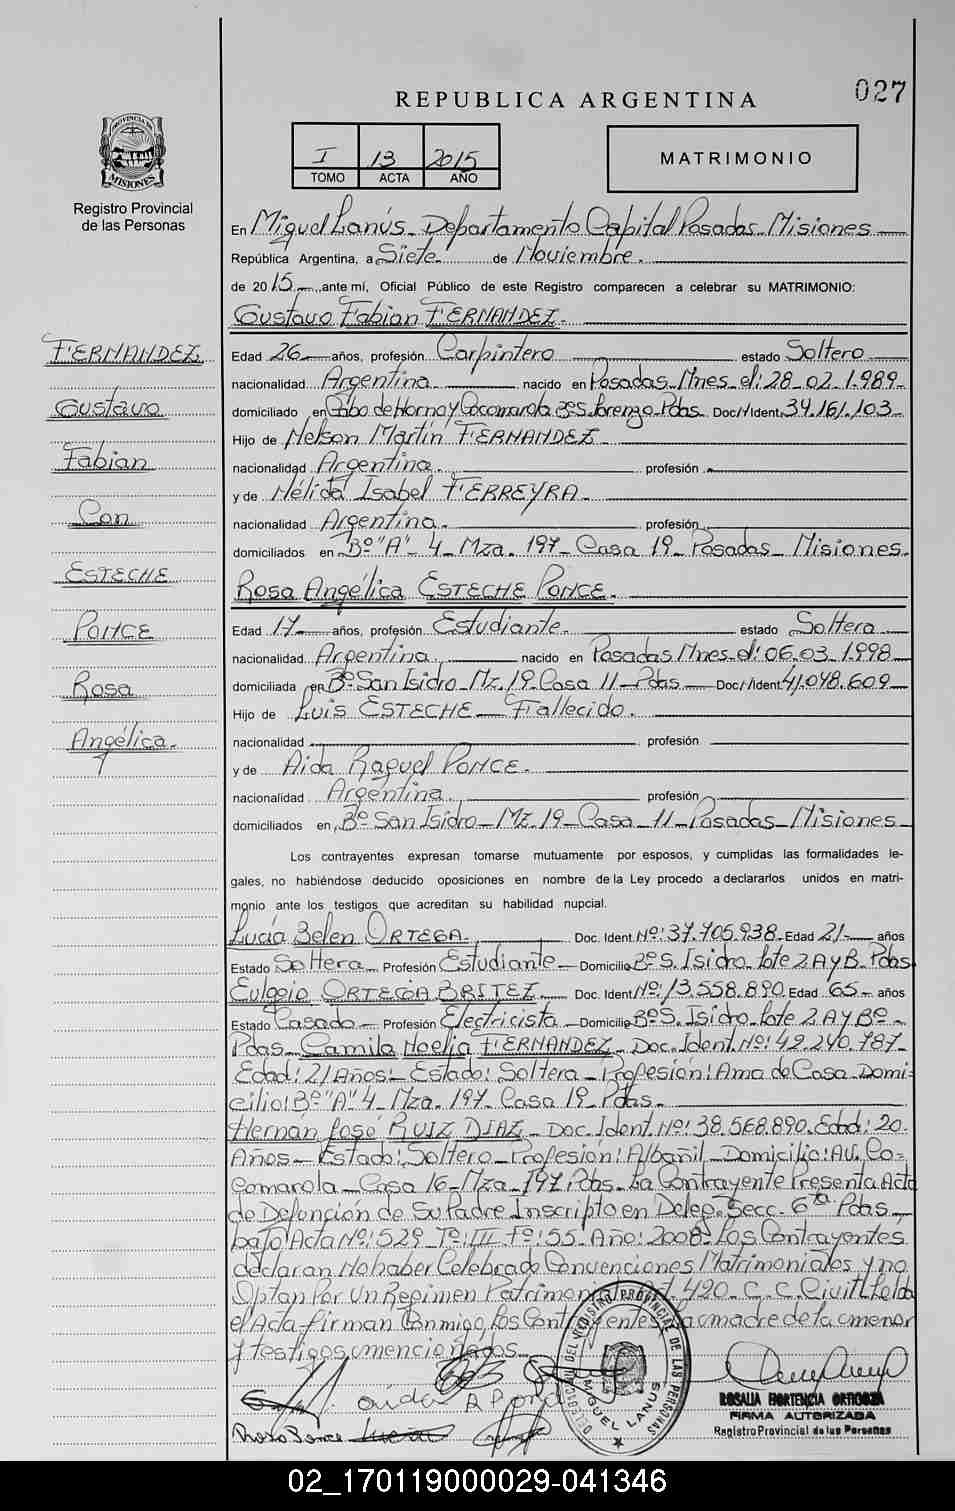 027
REPUBLICA ARGENTINA
PROVINCIA DE
MISIONES
Registro Provincial
de las Personas
I 13 2015
TOMO ACTA AÑO
MATRIMONIO
En Miguel Lanús Departamento Capital Posadas Misiones
República Argentina, a Siete de Noviembre
de 2015, ante mí, Oficial Público de este Registro comparecen a celebrar su MATRIMONIO:
Gustavo Fabian FERNANDEZ
FERNANDEZ
Gustavo
Fabian
Con
ESTECHE
PONCE
Rosa
Angélica
Edad 26 años, profesión Carpintero estado Soltero
nacionalidad Argentina nacido en Posadas Mnes el: 28-02-1.989
domiciliado en Cabo de Hornos y Cocomarola Bº S. Lorenzo Pdas Doc. Ident. 34.161.103
Hijo de Nelson Martín FERNANDEZ
nacionalidad Argentina profesión
y de Nélida Isabel FERREYRA
nacionalidad Argentina profesión
domiciliados en Bº "A" 4 Mza. 197 Casa 19 Posadas Misiones
Rosa Angélica ESTECHE PONCE
Edad 17 años, profesión Estudiante estado Soltera
nacionalidad Argentina nacido en Posadas Mnes el: 06.03.1.998
domiciliada en Bº San Isidro Mz. 19 Casa 11 Pdas Doc. Ident. 41.048.609
Hijo de Luis ESTECHE Fallecido
nacionalidad profesión
y de Aida Raquel PONCE
nacionalidad Argentina profesión
domiciliados en Bº San Isidro Mz. 19 Casa 11 Posadas Misiones
Los contrayentes expresan tomarse mutuamente por esposos, y cumplidas las formalidades le-
gales, no habiéndose deducido oposiciones en nombre de la Ley procedo a declararlos unidos en matri-
monio ante los testigos que acreditan su habilidad nupcial.
Lucía Belen ORTEGA Doc. Ident. Nº: 37.705.938 Edad 21 años
Estado Soltera Profesión Estudiante Domicilio Bº S. Isidro Lote 2 A y B Pdas
Eulogio ORTEGA BRITEZ Doc. Ident. Nº: 13.558.890 Edad 65 años
Estado Casado Profesión Electricista Domicilio Bº S. Isidro Lote 2 A y Bº
Pdas Camila Noelia FERNANDEZ Doc. Ident. Nº: 42.240.787
Edad: 21 Años Estado: Soltera Profesión: Ama de Casa Domi-
cilio: Bº "A" 4 Mza. 197 Casa 19 Pdas.
Hernán José RUIZ DIAZ Doc. Ident. Nº: 38.568.890 Edad: 20
Años Estado: Soltero Profesión: Albañil Domicilio: Av. Co-
comarola Casa 16 Mza 197 Pdas. La Contrayente Presenta Acta
de Defunción de Su Padre Inscripto en Deleg. Secc. 6ta Pdas
bajo Acta Nº: 529 Tº: III Fº: 55 Año: 2008 Los Contrayentes
declaran No haber Celebrado Convenciones Matrimoniales y no
Optan Por Un Regimen Patrimonial Art. 420 C.C. Civil Leida
el Acta firman Conmigo, Los Contrayentes, la madre de la menor
y testigos mencionados
Aida R Ponce
Rosa Ponce
REGISTRO PROVINCIAL DE LAS PERSONAS
MIGUEL LANUS
ROSALIA HORTENCIA ORTIGOZA
FIRMA AUTORIZADA
Registro Provincial de las Personas
02_170119000029-041346